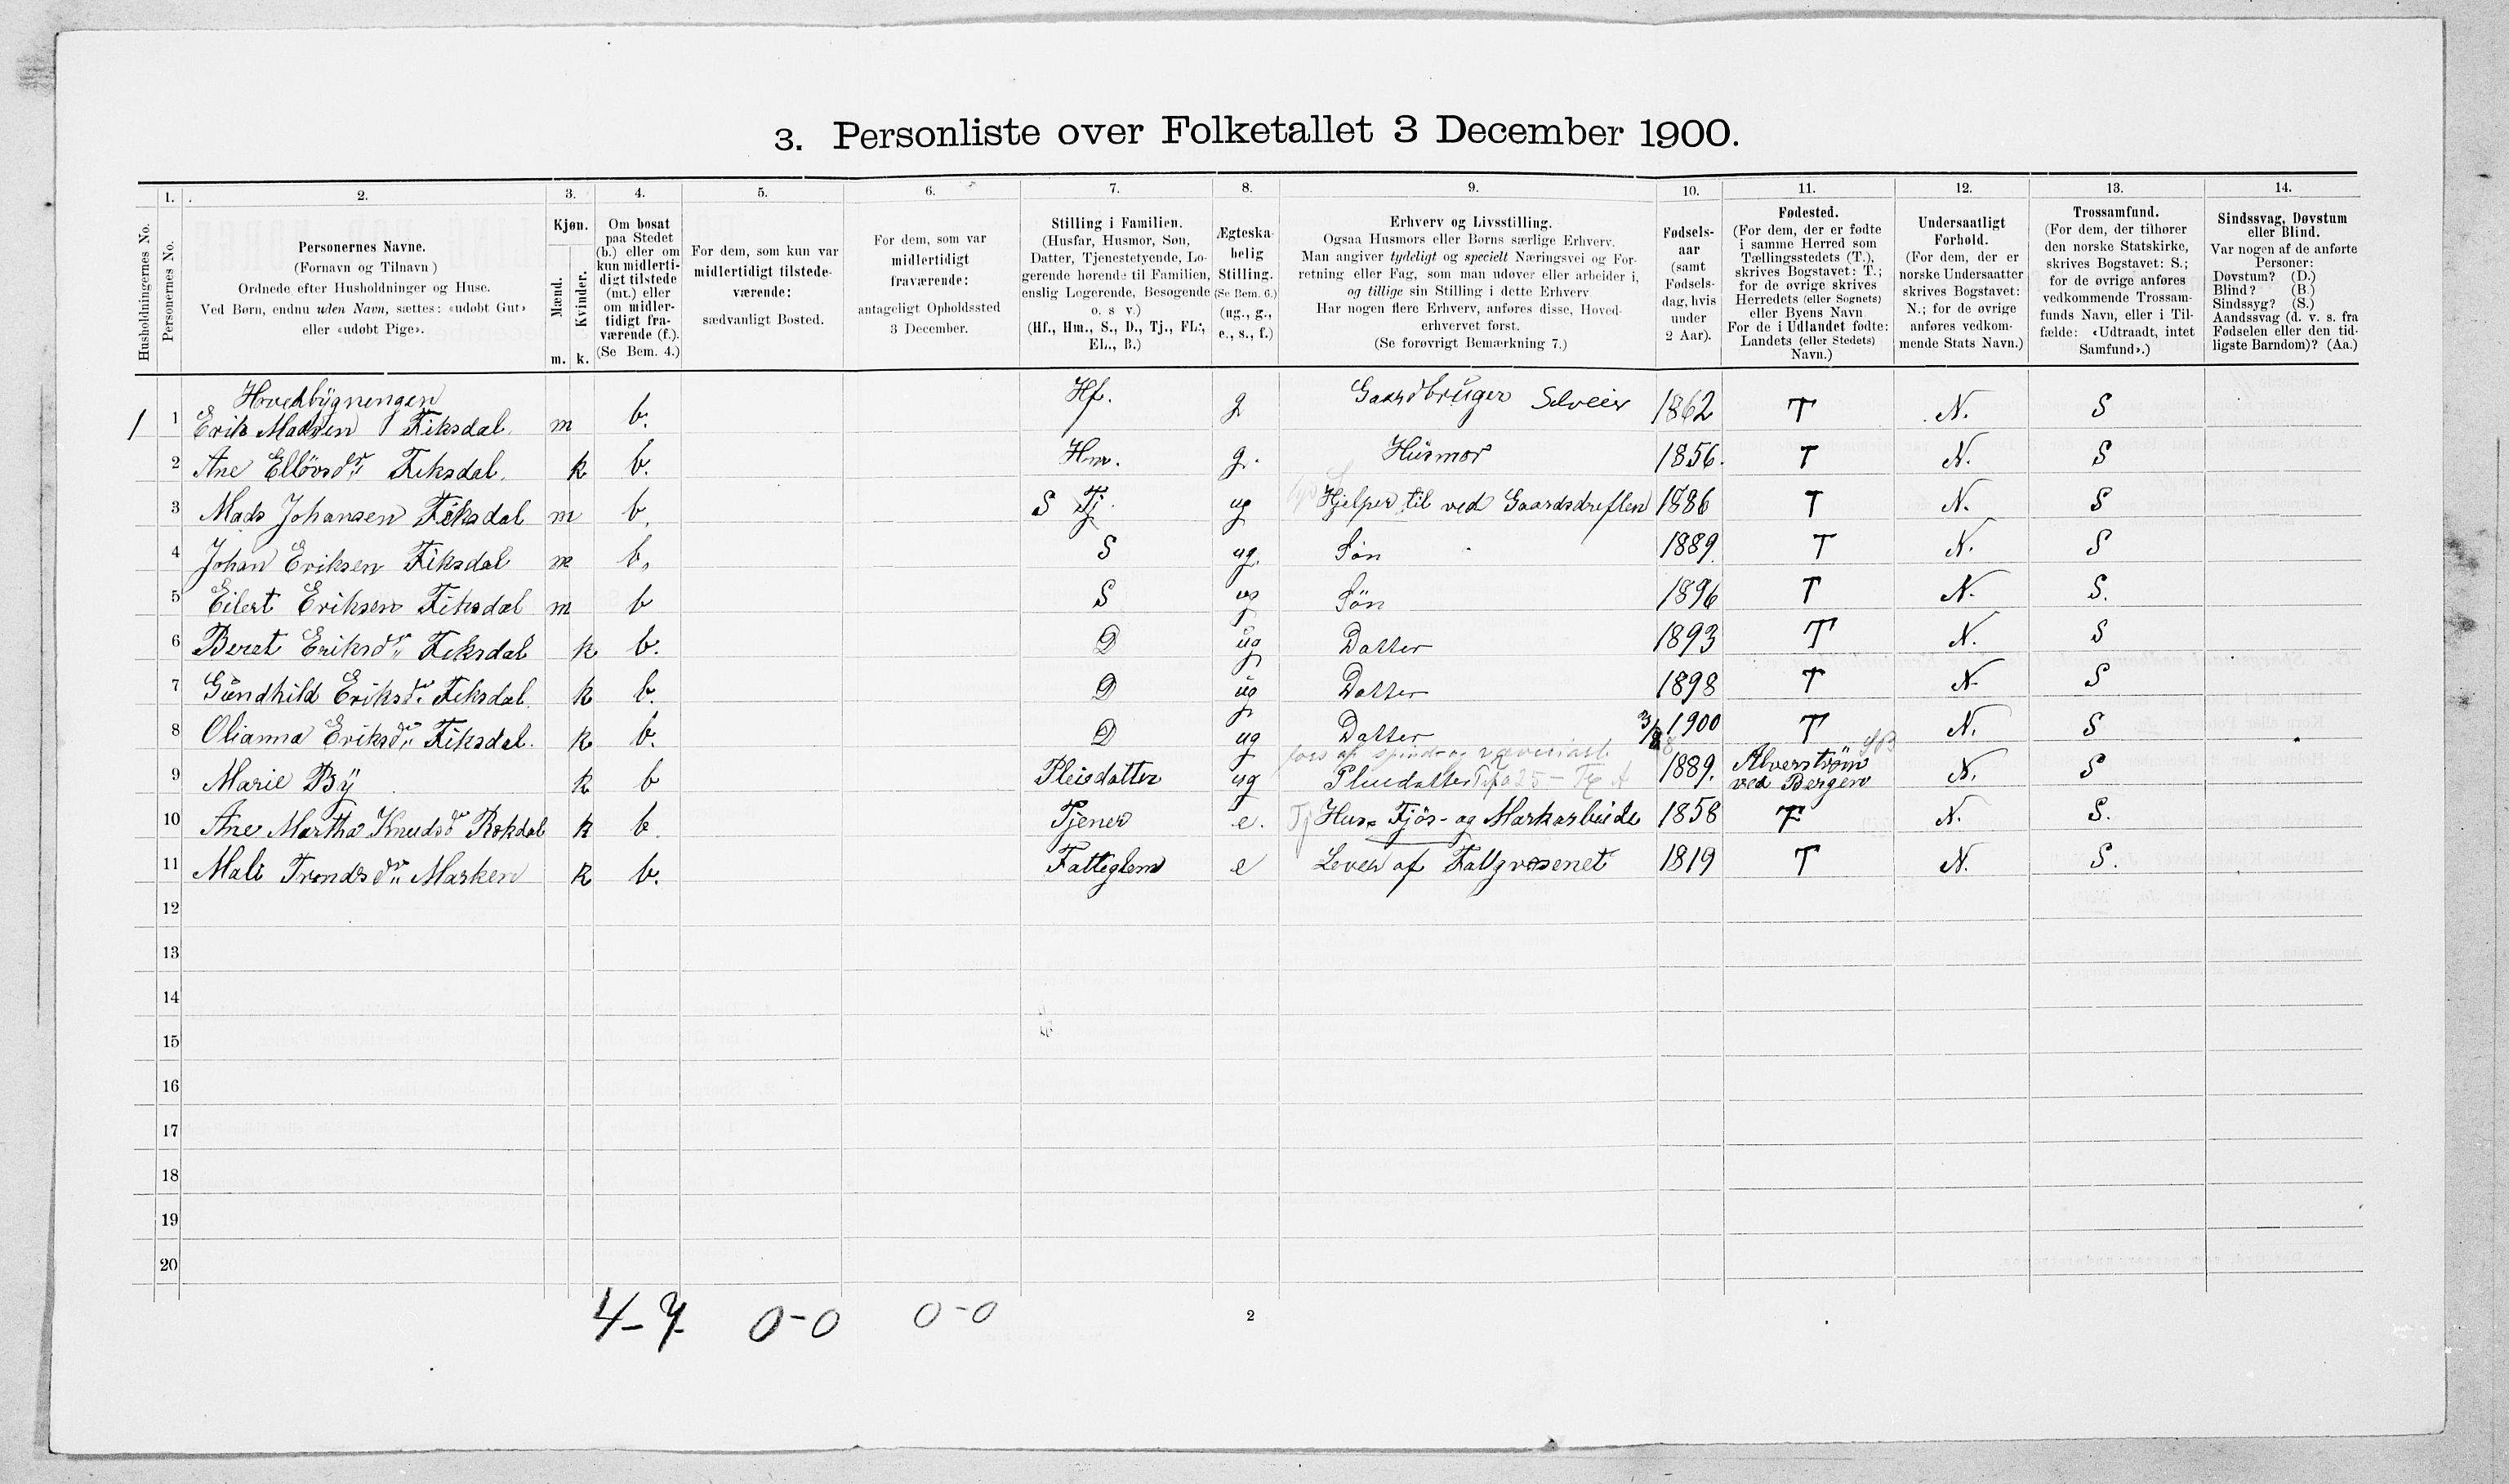 3. Personliste over Folketallet 3 December 1900.
Husholdningernes No.
1.
Personernes No.
2.
Personernes Navne.
(Fornavn og Tilnavn)
Ordnede efter Husholdninger og Huse.
Ved Børn, endnu uden Navn, sættes: «udøbt Gut»
eller «udøbt Pige».
3.
Kjøn.
Mænd.
Kvinder.
m. k.
4.
Om bosat
paa Stedet
(b.) eller om
kun midlerti-
digt tilstede
(mt.) eller
om midler-
tidigt fra-
værende (f.).
(Se Bem. 4.)
5.
For dem, som kun var
midlertidigt tilstede-
værende:
sædvanligt Bosted.
6.
For dem, som var
midlertidigt
fraværende:
antageligt Opholdssted
3 December.
7.
Stilling i Familien.
(Husfar, Husmor, Søn,
Datter, Tjenestetyende, Lo-
gerende hørende til Familien,
enslig Logerende, Besøgende
o. s v.)
(Hf., Hm., S., D., Tj., FL.,
EL., B.)
8.
Ægteska-
belig
Stilling.
(Se Bem. 6.)
(ug., g.,
e., s., f.)
9.
Erhverv og Livsstilling.
Ogsaa Husmors eller Børns særlige Erhverv.
Man angiver tydeligt og specielt Næringsvei og For-
retning eller Fag, som man udøver eller arbeider i,
og tillige sin Stilling i dette Erhverv
Har nogen flere Erhverv, anføres disse, Hoved-
erhvervet først.
(Se forøvrigt Bemærkning 7.)
10.
Fødsels-
aar
(samt
Fødsels-
dag, hvis
under
2 Aar).
11.
Fødested.
(For dem, der er fødte
i samme Herred som
Tællingsstedets (T.),
skrives Bogstavet: T.;
for de øvrige skrives
Herredets (eller Sognets)
eller Byens Navn
For de i Udlandet fødte:
Landets (eller Stedets)
Navn.)
12.
Undersaatligt
Forhold.
(For dem, der er
norske Undersaatter
skrives Bogstavet:
N.; for de øvrige
anføres vedkom-
mende Stats Navn.)
13.
Trossamfund.
(For dem, der tilhører
den norske Statskirke,
skrives Bogstavet: S.;
for de øvrige anføres
vedkommende Trossam-
funds Navn, eller i Til-
fælde: «Udtraadt, intet
Samfund».)
14.
Sindssvag, Døvstum
eller Blind.
Var nogen af de anførte
Personer:
Døvstum? (D.)
Blind? (B.)
Sindssyg? (S.)
Aandssvag (d. v. s. fra
Fødselen eller den tid-
ligste Barndom)? (Aa.)
Hovedbygningen
1 1 Erik Madsen Fiksdal m b. Hf. g Gaardbruger Selveier 1862 T N. S
2 Ane Ellövsdr. Fiksdal. k b. Hm. g. Husmor 1856. T N. S
3 Mads Johansen Fiksdal m b. S Tj. ug Hjelper til ved Gaardsdriften 1886 T N. S
4 Johan Eriksen Fiksdal m b. S ug Søn 1889. T N. S
5 Eilert Eriksen Fiksdal m b S ug Søn 1896 T N. S.
6 Beret Eriksdr. Fiksdal k b. D ug Datter 1893 T N. S
7 Gundhild Eriksdr. Fiksdal. k b. D ug Datter 1898 T N S
8 Olianna Eriksdr. Fiksdal. k b. D ug Datter 3/8 1900 T N. S
9 Marie By k b Pleiedatter ug Pleiedatter 1889. Alverstrøm ved Bergen N. S
10 Ane Martha Knudsdr Rokdal k b. Tjener e. Tj Hus- Fjös- og Markarbeide 1858 T N. S.
11 Mali Trondsdr. Marken k b. Fattiglem e Lever af Fattigvæsenet 1819 T N. S.
12
13
14
15
16
17
18
19
20
4-7 0-0 0-0
2